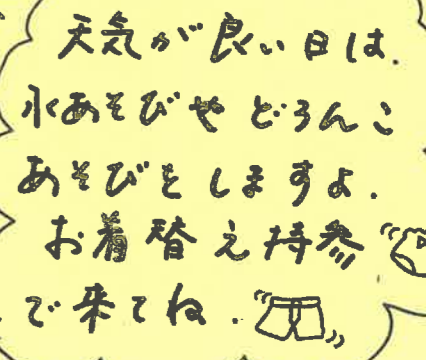 天気が良い日は.
水あそびや どろんこ
あそびをしますよ.
お着替え持参
で来てね.